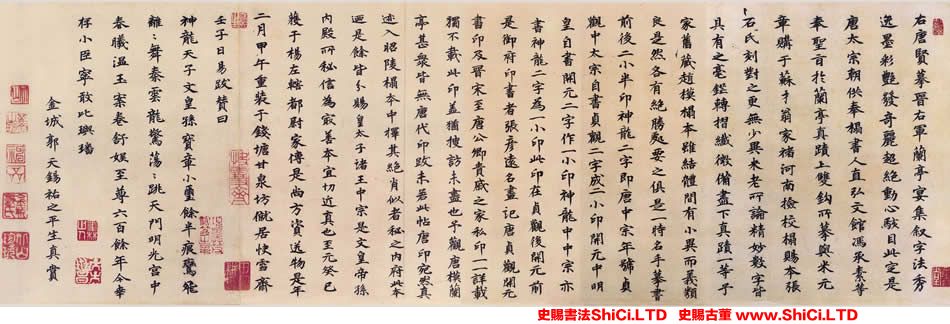 右唐賢摹晉右軍蘭亭宴集叙字法秀
逸墨彩艷發奇麗超絕動心駭目此定是
唐太宗朝供奉搨書人直弘文館馮承素等
奉聖旨於蘭亭真蹟上雙鈎所摹與米元
章購于蘇才翁家褚河南檢校搨賜本張
氏石刻對之更無少異米老所論精妙數字皆
具有之毫鋩轉摺纖微備盡下真蹟一等予
家舊藏趙模搨本雖結體間有小異而義類
良是然各有絕勝處要之俱是一時名手摹書
前後二小半印神龍二字即唐中宗年號貞
觀中太宗自書貞觀二字成二小印開元中明
皇自書開元二字作一小印神龍中中宗亦
書神龍二字為一小印此印在貞觀後開元前
是御府印書者張彥遠名畫記唐貞觀開元
書印及晉宋至唐公卿貴戚之家私印一一詳載
獨不載此印蓋猶搜訪未盡也予觀唐模蘭
亭甚眾皆無唐代印跋未若此帖唐印宛然真
迹入昭陵搨本中擇其絕肖似者秘之內府此本
迺是餘皆分賜皇太子諸王中宗是文皇帝孫
內殿所秘信為最善本宜切近真也至元癸巳
獲于楊左轄都尉家傳是尚方資送物是年
二月甲午重裝于錢塘甘泉坊僦居快雪齋
壬子日易跋贊曰
神龍天子文皇孫寶章小璽餘半痕驚鸞
離離舞秦雲龍驚蕩蕩跳天門明光宮中
春曦溫玉案卷舒娛至尊六百餘年今幸
存小臣寧敢比璵璠
金城郭天錫祐之平生真賞
史賜書法ShiCi.LTD 史賜古董 www.ShiCi.LTD